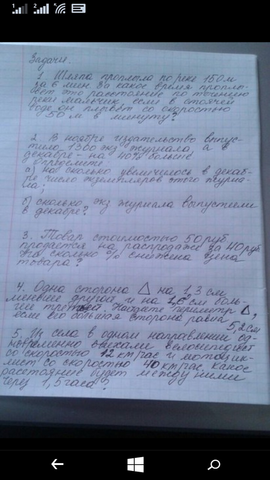 Задачи.
1. Шляпа проплыла по реке 150 м
за 6 мин. За какое время проплы-
вет это расстояние по течению
реки мальчик, если в стоячей
воде он плывет со скоростью
50 м в минуту?
2. В ноябре издательство выпус-
тило 1360 экз журнала, а в
декабре - на 40% больше
Определите
а) на сколько увеличилось в декаб-
ре число экземпляров этого журна-
ла;
б) сколько экз журнала выпустили
в декабре?
3. Товар стоимостью 50 руб
продают на распродаже за 40 руб
На сколько % снижена цена
товара?
4. Одна сторона △ на 1,3 см
меньше другой и на 1,6 см боль-
ше третьей. Найдите периметр △,
если его большая сторона равна
5,2 см
5. Из села в одном направлении од-
новременно выехали велосипедист
со скоростью 12 км/час и мотоцик-
лист со скоростью 40 км/час, какое
расстояние будет между ними
через 1,5 часа?